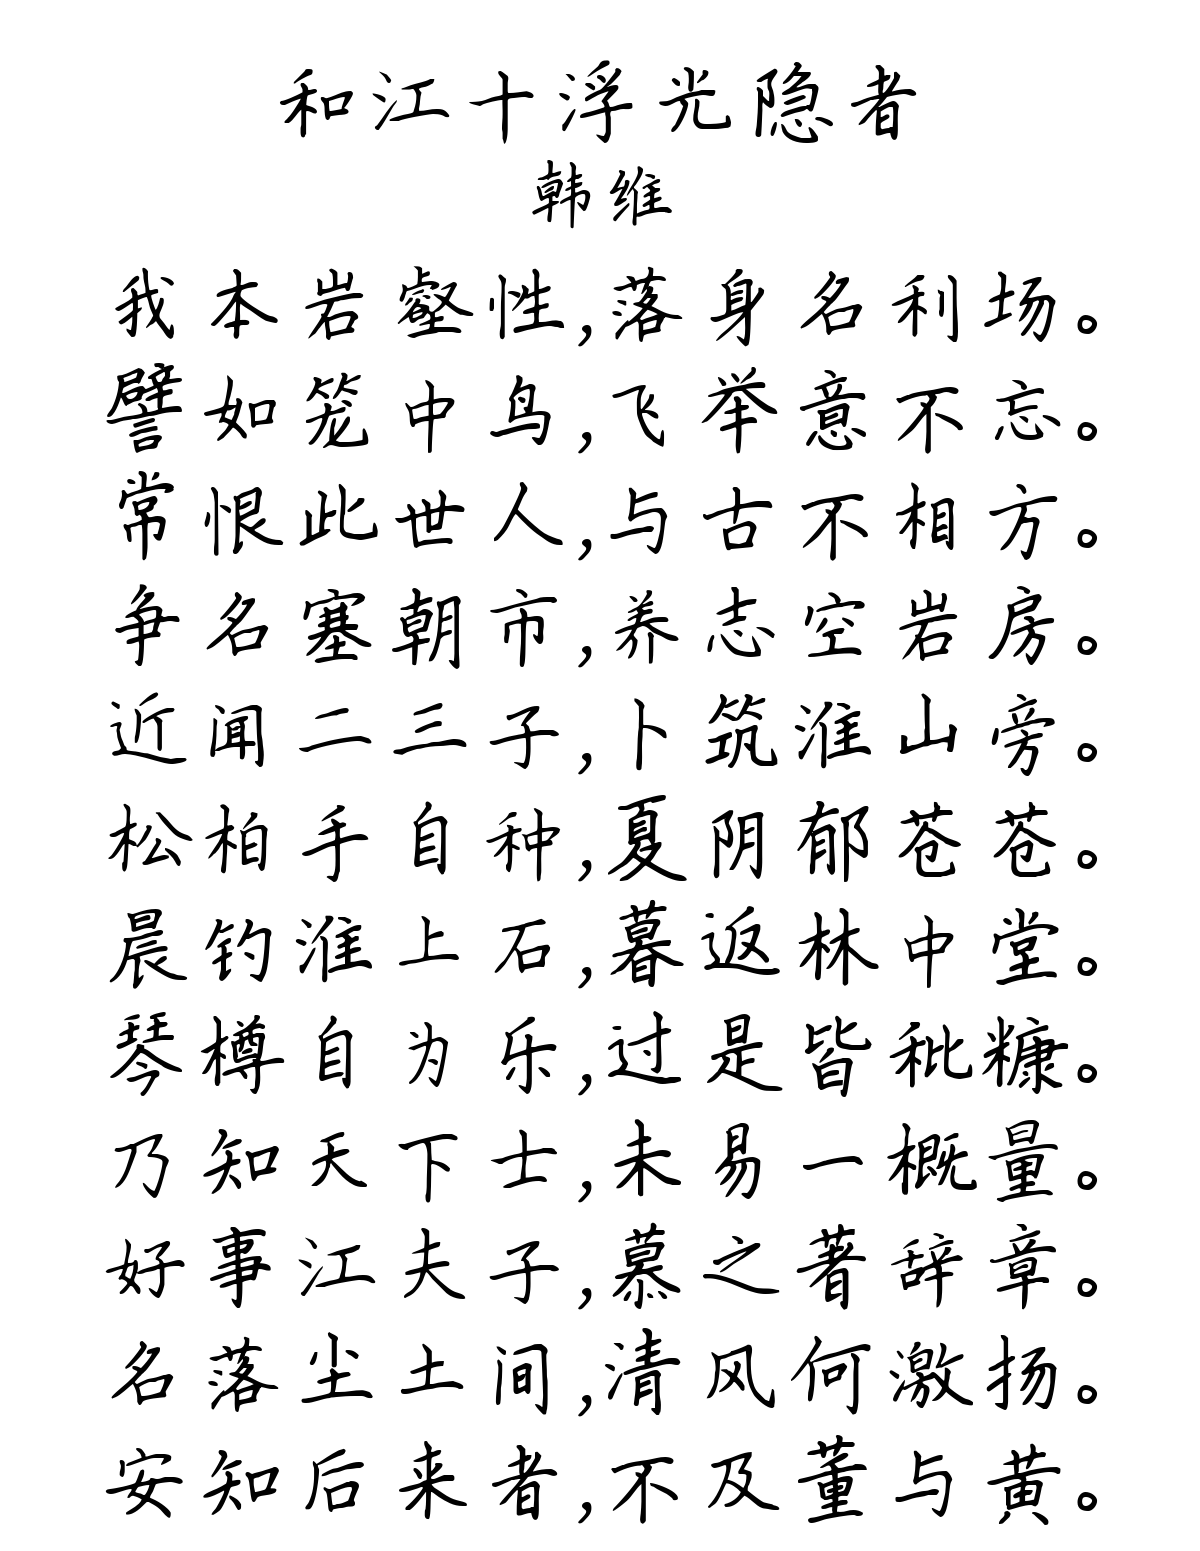 和江十浮光隐者
韩维
我本岩壑性,落身名利场。
譬如笼中鸟,飞举意不忘。
常恨此世人,与古不相方。
争名塞朝市,养志空岩房。
近闻二三子,卜筑淮山旁。
松柏手自种,夏阴郁苍苍。
晨钓淮上石,暮返林中堂。
琴樽自为乐,过是皆秕糠。
乃知天下士,未易一概量。
好事江夫子,慕之著辞章。
名落尘土间,清风何激扬。
安知后来者,不及董与黄。